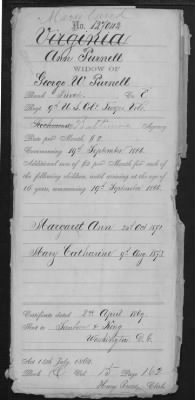 No. 127042
Virginia
Ann Purnell
WIDOW OF
George W. Purnell
Rank Private Co. E
Regt 9th U.S. Col. Troops Vols.
Agency
Rate per month, $8
Commencing 19th September 1866.
Additional sum of $2 per month for each of
the following children, until arriving at the age of
16 years, commencing 19th September 1866.
Margaret Ann 1871
Mary Catharine 9th Aug 1873
Certificate dated 2nd April 1869
Sent to
Washington D.C.
Act 14th July 1862.
Book Vol. Page 162
Clerk